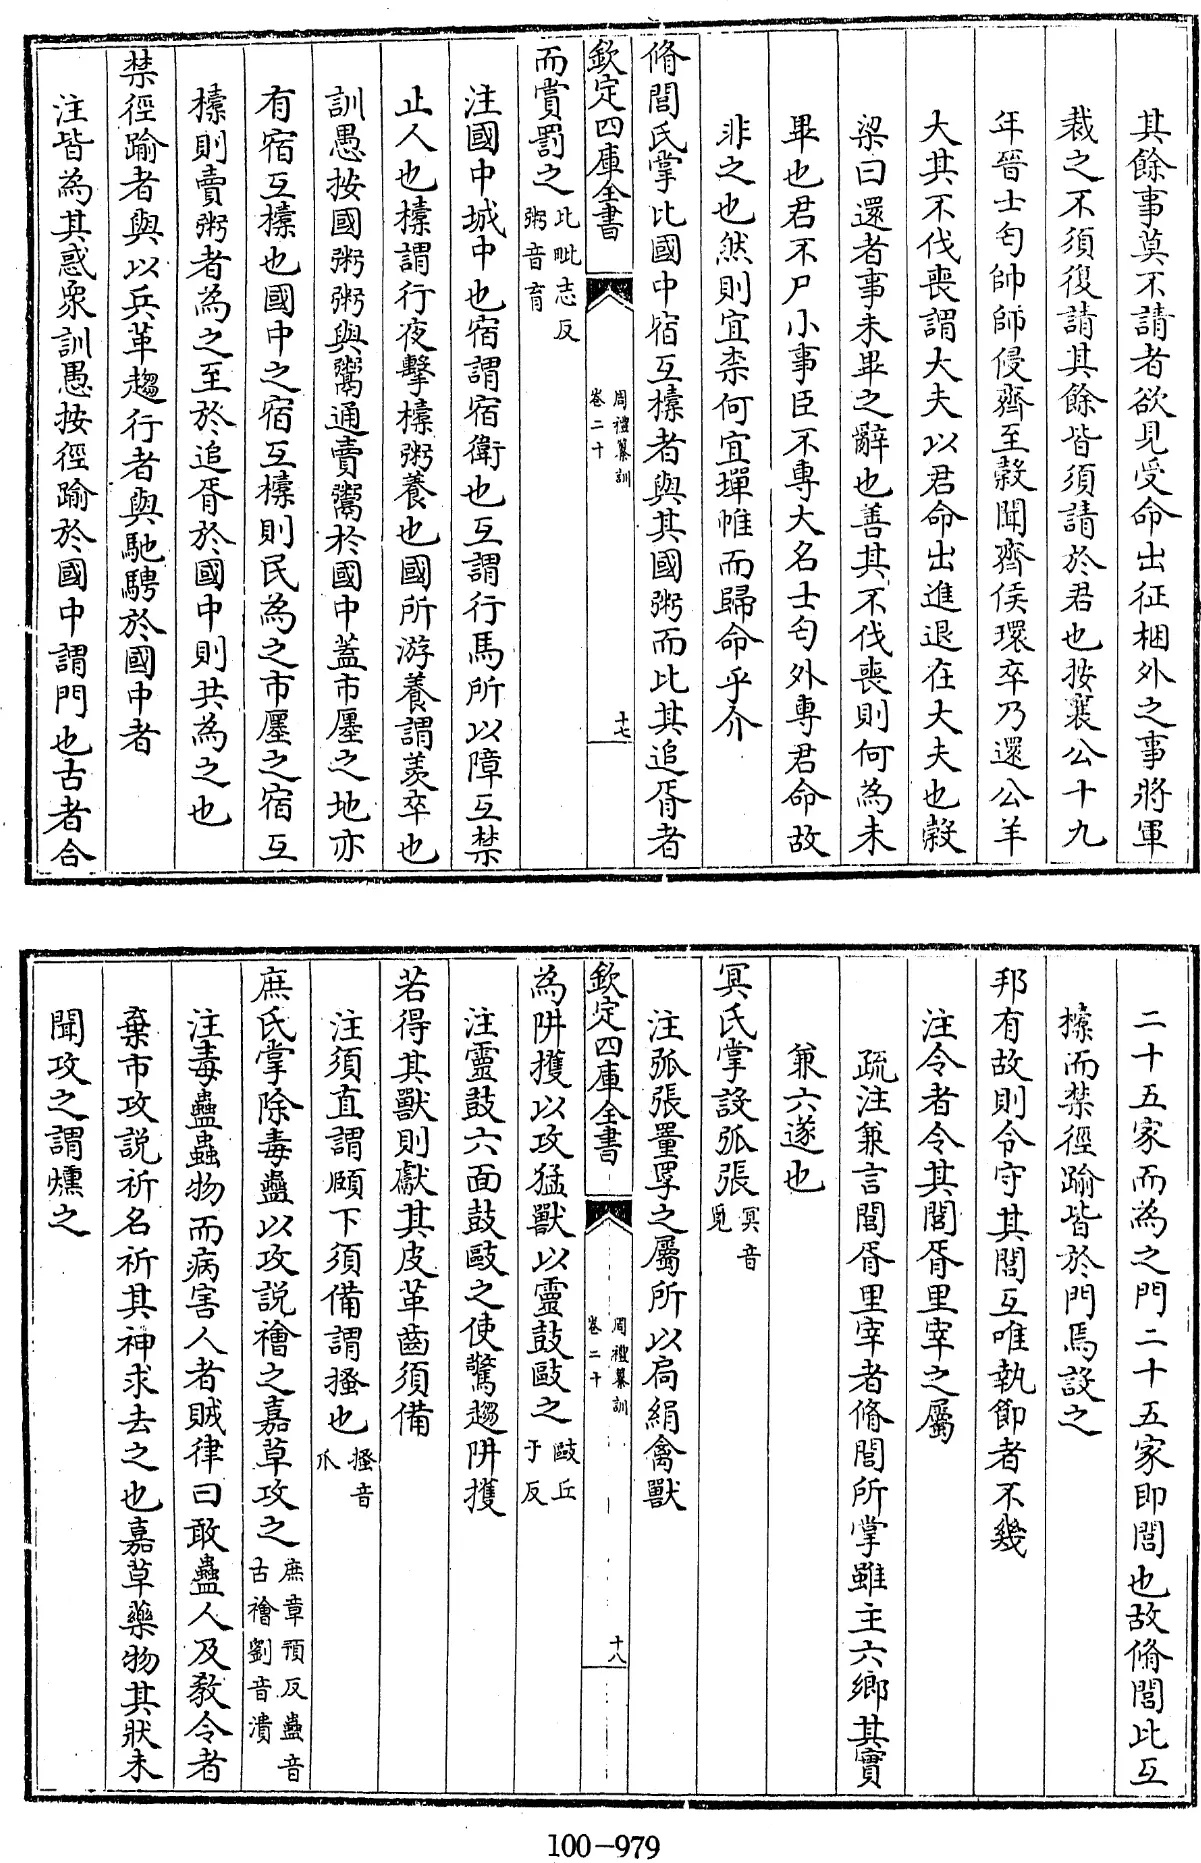 其餘事莫不請者欲見受命出征梱外之事將軍
裁之不須復請其餘皆須請於君也按襄公十九
年晉士匄帥師侵齊至穀聞齊侯環卒乃還公羊
大其不伐喪謂大夫以君命出進退在大夫也穀
梁曰還者事未畢之辭也善其不伐喪則何為未
畢也君不尸小事臣不專大名士匄外專君命故
非之也然則宜柰何宜墠帷而歸命乎介
脩閭氏掌比國中宿互㯓者與其國粥而比其追胥者
欽定四庫全書
周禮纂訓
卷二十
十七
而賞罰之比毗志反
粥音育
注國中城中也宿謂宿衛也互謂行馬所以障互禁
止人也㯓謂行夜擊㯓粥養也國所游養謂羡卒也
訓愚按國粥粥與鬻通賣鬻於國中蓋市廛之地亦
有宿互㯓也國中之宿互㯓則民為之市廛之宿互
㯓則賣粥者為之至於追胥於國中則共為之也
禁徑踰者與以兵革趨行者與馳騁於國中者
注皆為其惑衆訓愚按徑踰於國中謂門也古者合
二十五家而為之門二十五家即閭也故脩閭比互
㯓而禁徑踰皆於門焉設之
邦有故則令守其閭互唯執節者不幾
注令者令其閭胥里宰之屬
疏注兼言閭胥里宰者脩閭所掌雖主六鄉其實
兼六遂也
冥氏掌設弧張冥音
覓
注弧張罿罦之屬所以扃絹禽獸
欽定四庫全書
周禮纂訓
卷二十
十八
為阱擭以攻猛獸以靈鼓敺之敺丘
于反
注靈鼓六面鼓敺之使驚趨阱擭
若得其獸則獻其皮革齒須備
注須直謂頤下須備謂搔也搔音
爪
庶氏掌除毒蠱以攻説禬之嘉草攻之庶章預反蠱音
古禬劉音潰
注毒蠱蟲物而病害人者賊律曰敢蠱人及教令者
棄市攻説祈名祈其神求去之也嘉草藥物其狀未
聞攻之謂燻之
100-979